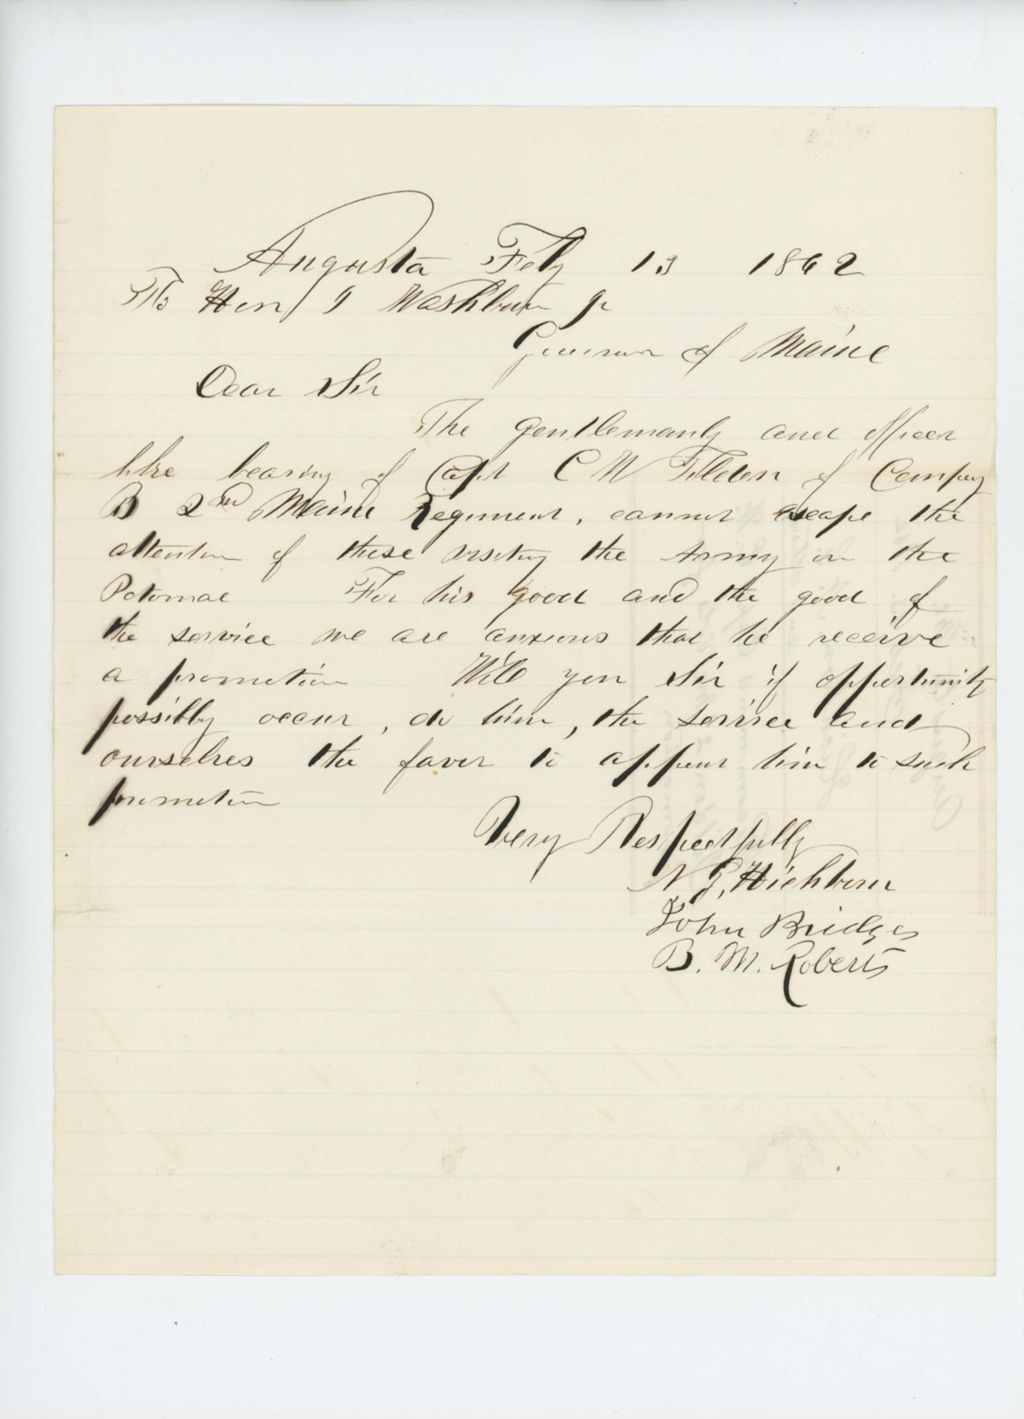 Augusta Feby 13 1862
To Hon I Washburn Jr
Governor of Maine
Dear Sir
The gentlemanly and officer
like bearing of Capt C W Tilden of Company
B 2nd Maine Regiment, cannot escape the
attention of those visiting the Army on the
Potomac For his good and the good of
the service we are anxious that he receive
a promotion Will you Sir if opportunity
possibly occur, do him, the service and
ourselves the favor to appoint him to such
promotion
Very Respectfully
N. G. Hichborn
John Bridges
B. M. Roberts